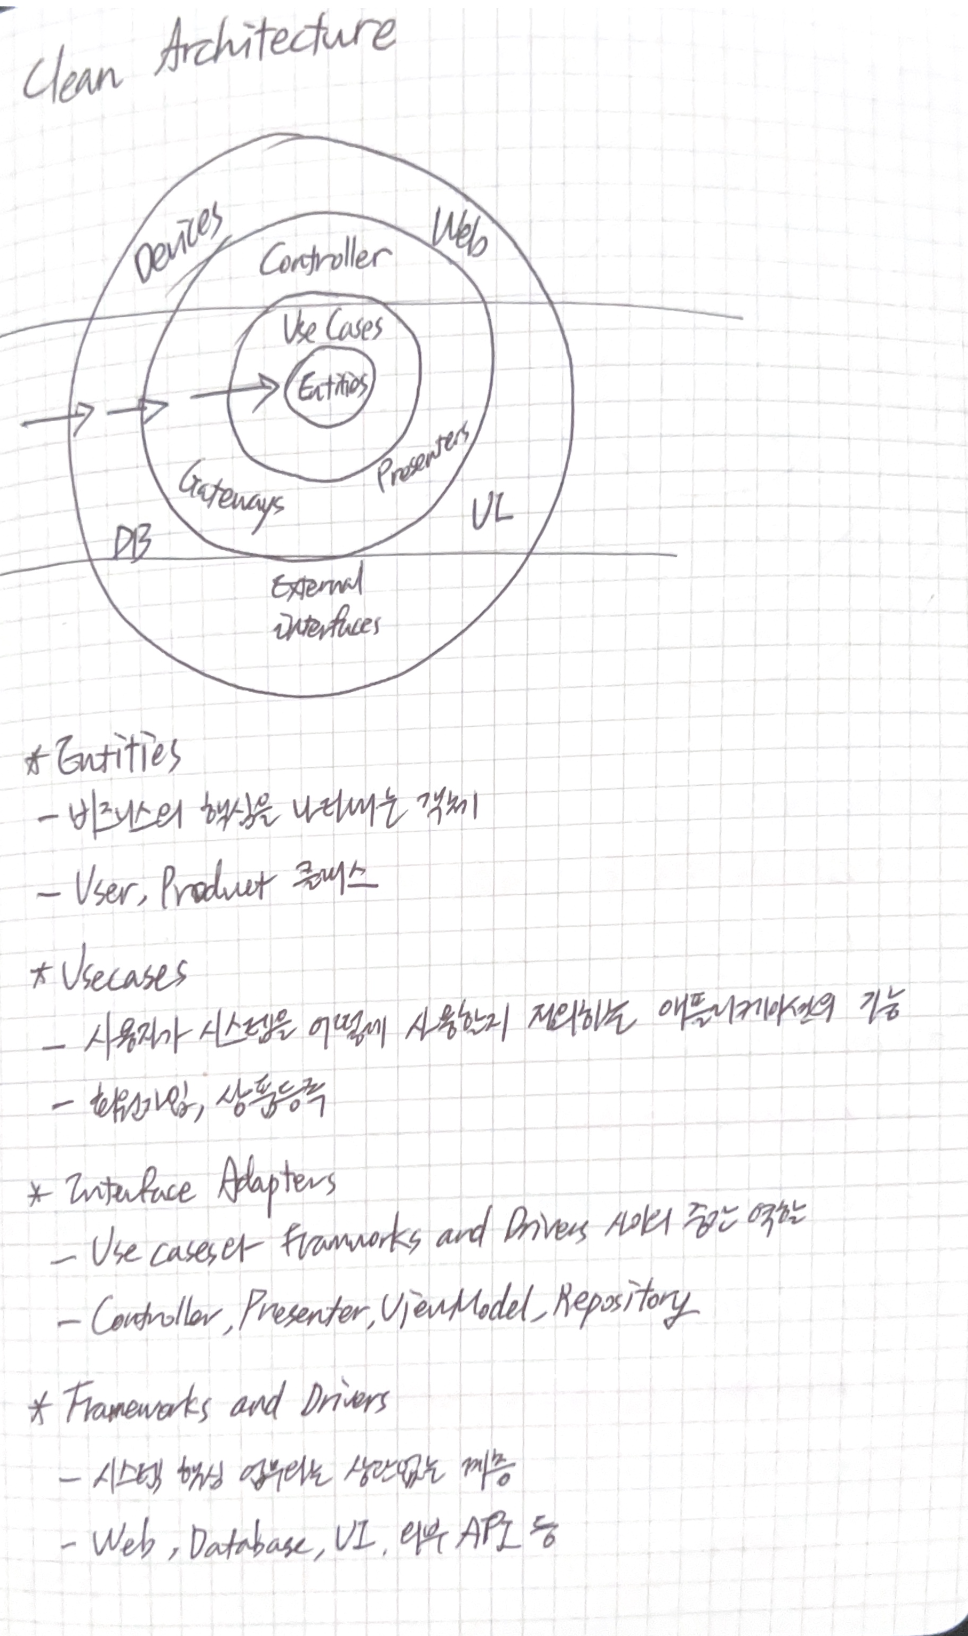 Clean Architecture
Devices
Web
Controller
Use Cases
Entities
Presenters
Gateways
UI
DB
External
interfaces
* Entities
- 비즈니스의 핵심을 나타내는 객체
- User, Product 클래스
* Usecases
- 사용자가 시스템을 어떻게 사용할지 정의하는 애플리케이션의 기능
- 회원가입, 상품등록
* Interface Adapters
- Use cases와 Framworks and Drivers 사이의 중간 역할
- Controller, Presenter, ViewModel, Repository
* Frameworks and Drivers
- 시스템 핵심 업무와는 상관없는 계층
- Web, Database, UI, 외부 API 등